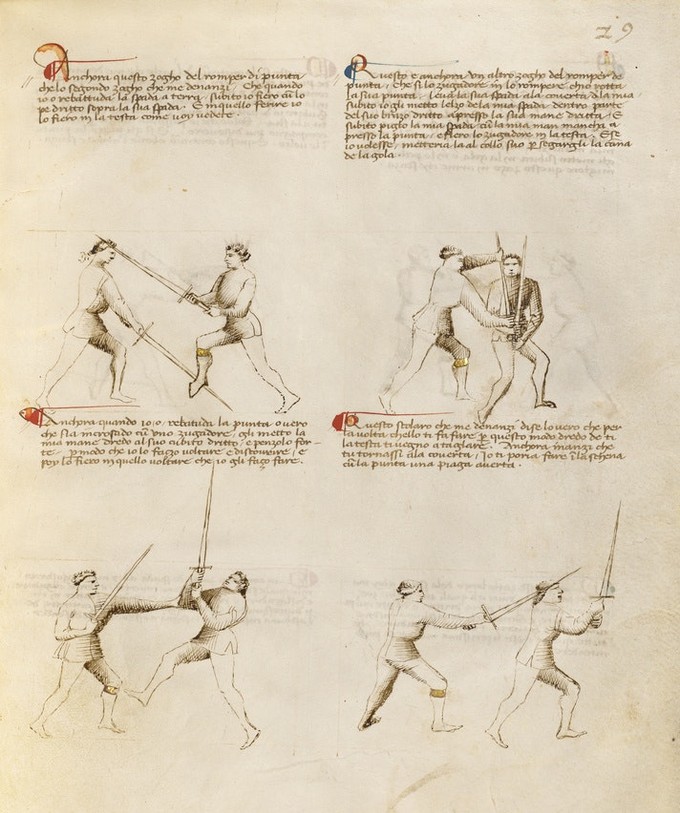 29
Anchora questo zogho del romper di punta
che lo segondo zogho che me denanzi. Che quando
io o rebattuda la spada a terra, subito io fiero cu lo
pe dritto sopra la sua spada. E in quello ferire io
lo fiero in la testa come voy vedete.
Questo e anchora un altro zogho del romper de
punta, che si lo zugadore in lo rompere ch'io rotta
la sua punta, leva la sua spada ala coverta, dla mia
subito io gli metto l'elzo de la mia spada dentro parte
del suo brazo dritto apresso la sua mane dritta, E
subito piglo la mia spada cu la mia man mancha a
presso la punta, e fiero lo zugadore in la testa. E se
io volesse, metteria la al collo suo p segargli la cana
de la gola.
Anchora quando io o rebatuda la punta o vero
che sia incrosado cu uno zugadore, gli metto la
mia mane dredo al suo cubito dritto, e penzolo for-
te, p modo che io lo fazo voltare e discovrire, e
poy lo fiero in quello voltare che io gli fazo fare.
Questo scolaro che me denanzi dise lo vero che per
la volta ch'ello ti fa fare p questo modo dredo de ti
la testa ti vegno a taglare. Anchora inanzi che
tu tornassi ala coverta, Io ti poria fare i la schena
cu la punta una piaga averta.